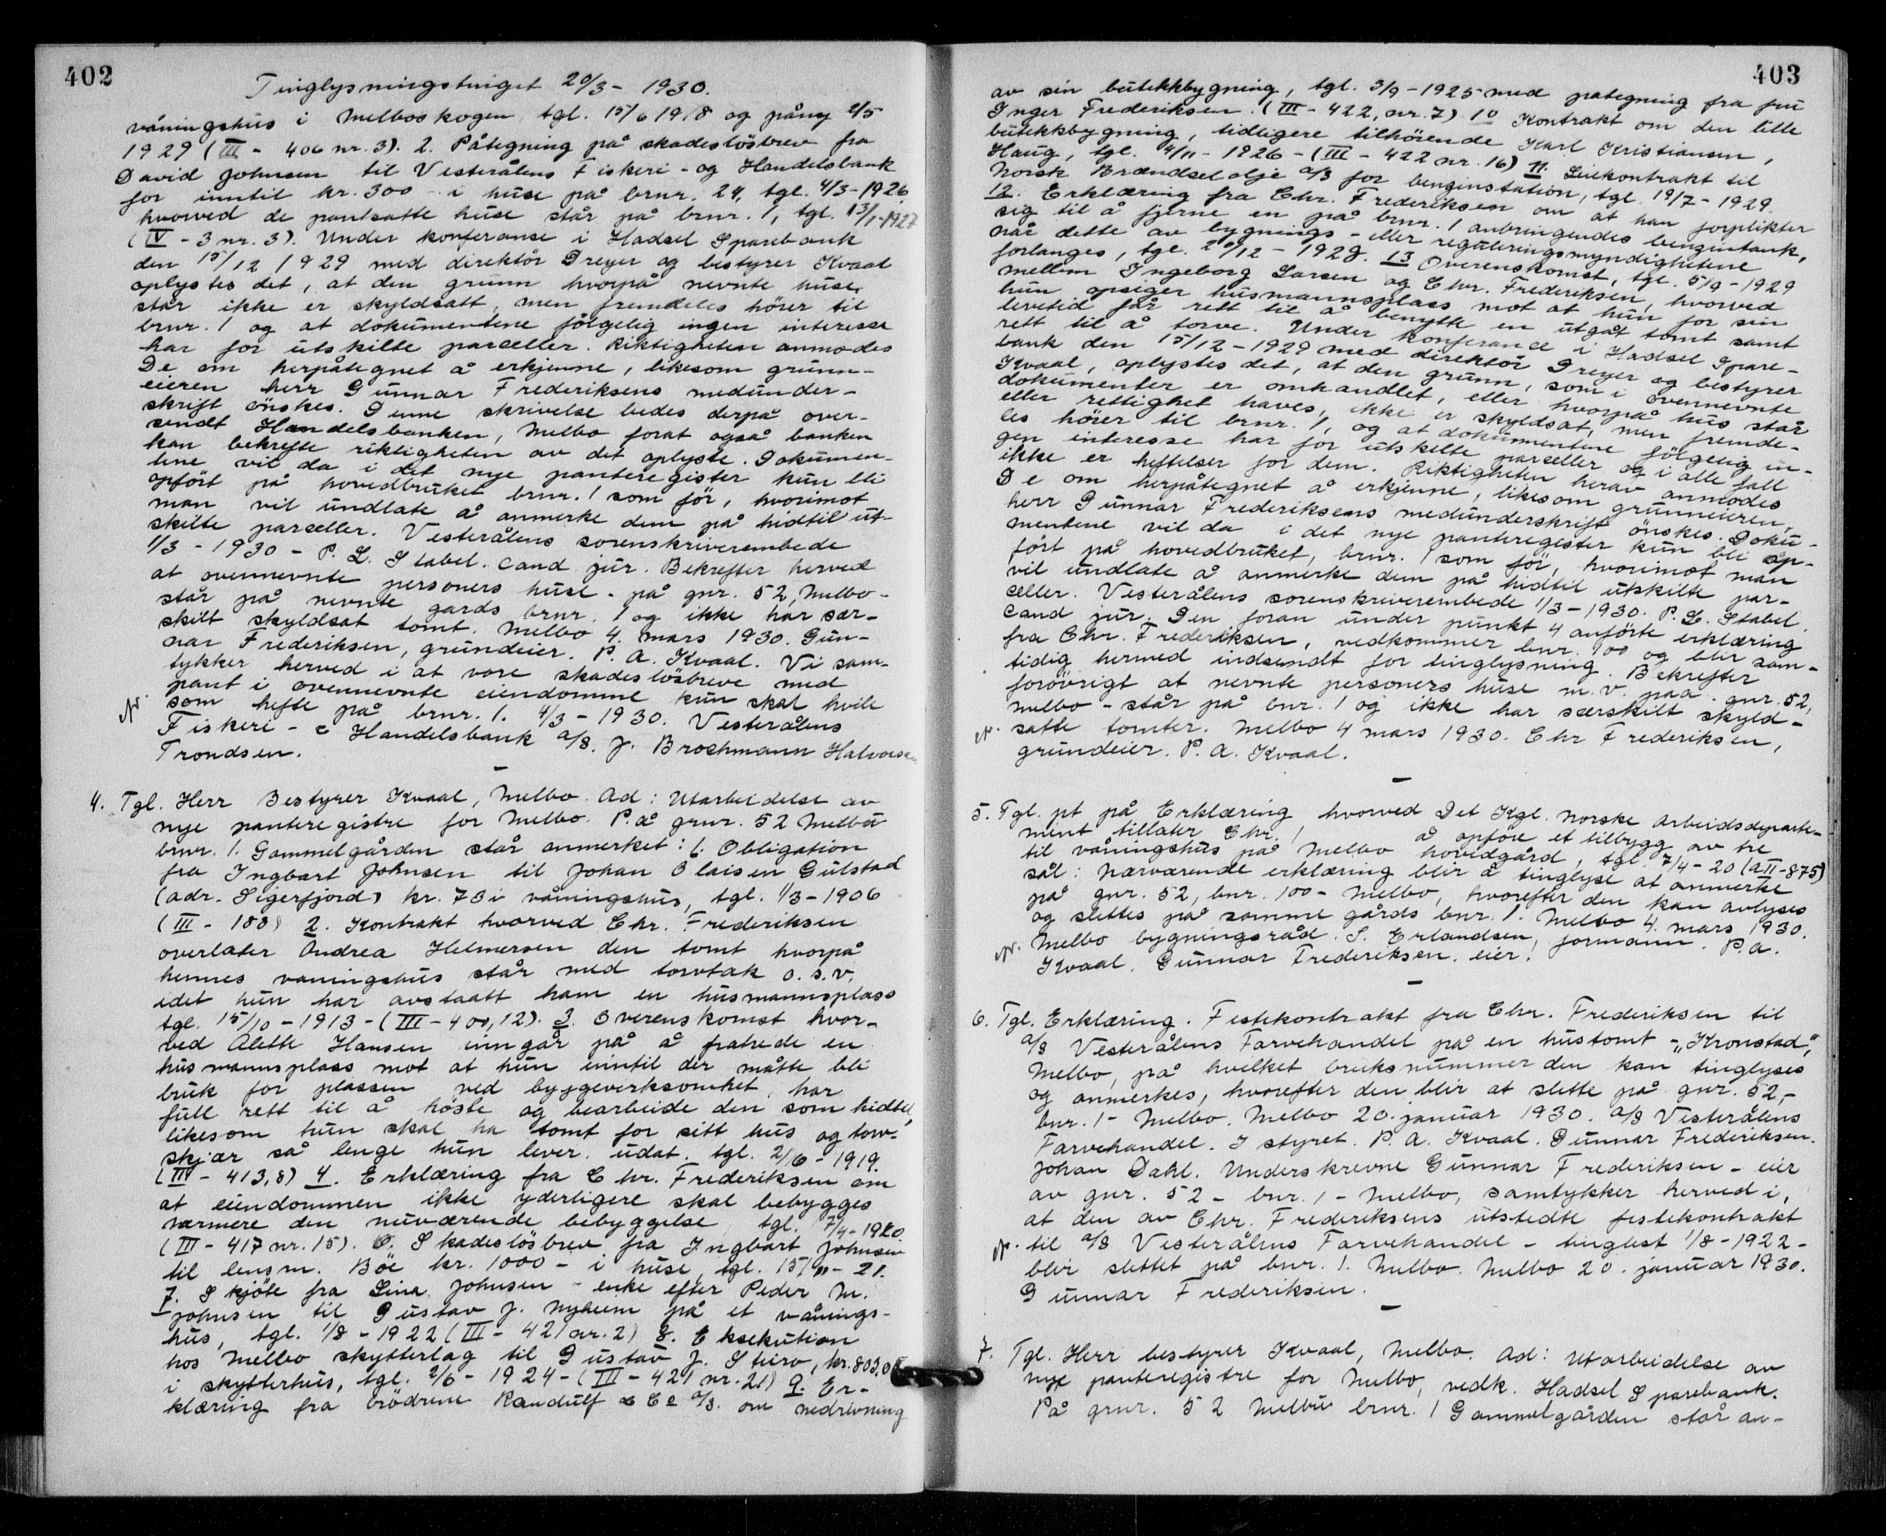 402
Tinglysningstinget 20/3 - 1930.
våningshus i Melboskogen, tgl. 15/6 1918 og påny 2/5
1929 (III - 406 nr. 3). 2. Påtegning på skadeslösbrev fra
David Johnsen til Vesterålens Fiskeri- og Handelsbank
for inntil kr. 300 - i huse på brnr. 24, tgl. 4/3 - 1926
hvorved de pantsatte huse står på brnr. 1, tgl. 13/1-1927
(IV - 3 nr. 3). Under konferanse i Hadsel Sparebank
den 15/12 1929 med direktör Dreyer og bestyrer Kvaal
oplystes det, at den grunn hvorpå nevnte huse
står ikke er skyldsatt, men fremdeles hörer til
brnr. 1 og at dokumentene fölgelig ingen interesse
har for utskilte parceller. Riktigheten anmodes
De om herpåtegnet å erkjenne, likesom grunn-
eieren herr Gunnar Frederiksens medunder-
skrift önskes. Denne skrivelse bedes derpå over-
sendt Handelsbanken, Melbo forat også banken
kan bekrefte riktigheten av det oplyste. Dokumen-
tene vil da i det nye panteregister kun bli
opfört på hovedbruket brnr. 1 som för, hvorimot
man vil undlate å anmerke dem på hidtil ut-
skilte parceller. Vesterålens sorenskriverembede
1/3 - 1930 - P. L. Stabel. cand. jur. Bekrefter herved
at ovennevnte personers huse - på gnr. 52, Melbo -
står på nevnte gards brnr. 1 og ikke har sær-
skilt skyldsat tomt. Melbo 4. mars 1930. Gun-
nar Frederiksen, grundeier. P. A. Kvaal. Vi sam-
tykker herved i at vore skadeslösbreve med
pant i ovennevnte eiendomme kun skal hvile
som hefte på brnr. 1. 4/3 - 1930. Vesterålens
Fiskeri- & Handelsbank a/s. J. Brochmann Halvorsen
Trondsen.
4. Tgl. Herr Bestyrer Kvaal, Melbo. Ad: Utarbeidelse av
nye panteregistre for Melbo. På gnr. 52 Melbu
brnr. 1. Gammelgården står anmerket: 1. Obligation
fra Ingbart Johnsen til Johan Olaisen Gulstad
(adr. Sigerfjord) kr. 73 i våningshus, tgl. 1/3 - 1906
(III - 183) 2. Kontrakt hvorved Chr. Frederiksen
overlater Andrea Helmersen den tomt hvorpå
hennes vaningshus står med torvtak o. s. v,
idet hun har avstaatt ham en husmannsplass
tgl. 15/10 - 1913 - (III - 400, 12). 3. Overenskomst hvor-
ved Aleth Hansen inngår på å fratrede en
husmannsplass mot at hun inntil der måtte bli
bruk for plassen ved byggevirksomhet, har
full rett til å höste og bearbeide den som hidtil,
likesom hun skal ha tomt for sitt hus og torv-
skjær så lenge hun lever. udat. tgl. 2/6 - 1919.
(III - 413,8) 4. Erklæring fra Chr. Frederiksen om
at eiendommen ikke yderligere skal bebygges
nærmere den nuværende bebyggelse, tgl. 7/4 - 1920
(III - 417 nr. 15). 6. Skadeslösbrev fra Ingbart Johnsen
til lensm. Böe kr. 1000 - i huse, tgl. 15/11 - 21.
7. Skjöte fra Lina Johnsen - enke efter Peder M.
Johnsen til Gustav J. Nyheim på et vånings-
hus, tgl. 1/8 - 1922 (III - 421 nr. 2) 8. Eksekution
hos Melbo skytterlag til Gustav J. Stiro, kr. 803,05
i skytterhus, tgl. 2/6 - 1924 - (III - 421 nr. 21) 9. Er-
klæring fra brödrene Randulf & Co a/s. om nedrivning
403
av sin butikkbygning, tgl. 3/9 - 1925 med pategning fra fru
Inger Frederiksen. (III - 422, nr. 7) 10 Kontrakt om den lille
butikkbygning, tidligere tilhörende Karl Kristiansen,
Haug, tgl. 4/11 - 1926 - (III - 422 nr. 16) 11. Leiekontrakt til
Norsk Brændselolje a/s for benzinstation, tgl. 19/7 - 1929.
12. Erklæring fra Chr. Frederiksen om at han forplikter
sig til å fjerne en på brnr. 1 anbringendes benzintank,
når dette av bygnings- eller reguleringsmyndighetene
forlanges, tgl. 20/12 - 1928. 13 Overenskomst, tgl. 5/9 - 1929
mellem Ingeborg Larsen og Chr. Frederiksen, hvorved
hun opsiger husmannsplass mot at hun for sin
levetid får rett til å benytte en utgåt tomt samt
rett til å torve. Under konferance i Hadsel Spare-
bank den 15/12 - 1929 med direktör Dreyer og bestyrer
Kvaal, oplystes det, at den grunn, som i ovennevnte
dokumenter er omhandlet, eller hvorpå hus står
eller rettighet haves, ikke er skyldsat, men fremde-
les hörer til brnr. 1, og at dokumentene fölgelig in-
gen interesse har for utskilte parceller og i alle fall
ikke er heftelser for dem. Riktigheten herav anmodes
De om herpåtegnet å erkjenne, likesom grunneieren,
herr Gunnar Frederiksens medunderskrift önskes. Doku-
mentene vil da i det nye panteregister kun bli op-
fört på hovedbruket, brnr. 1 som för, hvorimot man
vil undlate å anmerke dem på hidtil utskilte par-
celler. Vesterålens sorenskriverembede 1/3 - 1930. P. L. Stabel
cand jur. Den foran under punkt 4 anförte erklæring
fra Chr. Frederiksen, vedkommer bnr. 100 og blir sam-
tidig hermed indsendt for tinglysning. Bekrefter
forövrigt at nevnte personers huse m. v. paa gnr. 52,
Melbo - står på bnr. 1 og ikke har særskilt skyld-
satte tomter. Melbo 4 mars 1930. Chr Frederiksen,
grundeier. P. A. Kvaal.
5. Tgl. pt på Erklæring hvorved Det Kgl. Norske Arbeidsdeparte-
ment tillater Chr. 1 å opföre et tilbygg av tre
til våningshus på Melbo hovedgård, tgl. 7/4 - 20 (AII - 875)
sål: Nærværende erklæring blir å tinglyse at anmerke
på gnr. 52, bnr. 100 - Melbo, hvorefter den kan avlyses
og slettes på samme gårds bnr. 1. Melbo 4. mars 1930.
Melbo bygningsråd. S. Erlandsen, formann. P. A.
Kvaal. Gunnar Frederiksen. eier.
6. Tgl. Erklæring. Festekontrakt fra Chr. Frederiksen til
a/s Vesterålens Farvehandel på en hustomt - "Kronstad",
Melbo, på hvilket bruksnummer den kan tinglyses
og anmerkes, hvorefter den blir at slette på gnr. 52,-
bnr. 1 - Melbo. Melbo 20. januar 1930. a/s Vesterålens
Farvehandel. I styret. P. A. Kvaal. Gunnar Frederiksen.
Johan Dahl. Underskrevne Gunnar Frederiksen - eier
av gnr. 52 - bnr. 1 - Melbo, samtykker herved i,
at den av Chr. Frederiksens utstedte festekontrakt
til a/s Vesterålens Farvehandel - tinglest 1/8 - 1922 -
blir slettet på bnr. 1. Melbo. Melbo 20. januar 1930.
Gunnar Frederiksen.
7. Tgl. Herr bestyrer Kvaal, Melbo. Ad: Utarbeidelse av
nye panteregistre for Melbo, vedk. Hadsel Sparebank.
På gnr. 52 Melbu brnr. 1 Gammelgården står an-